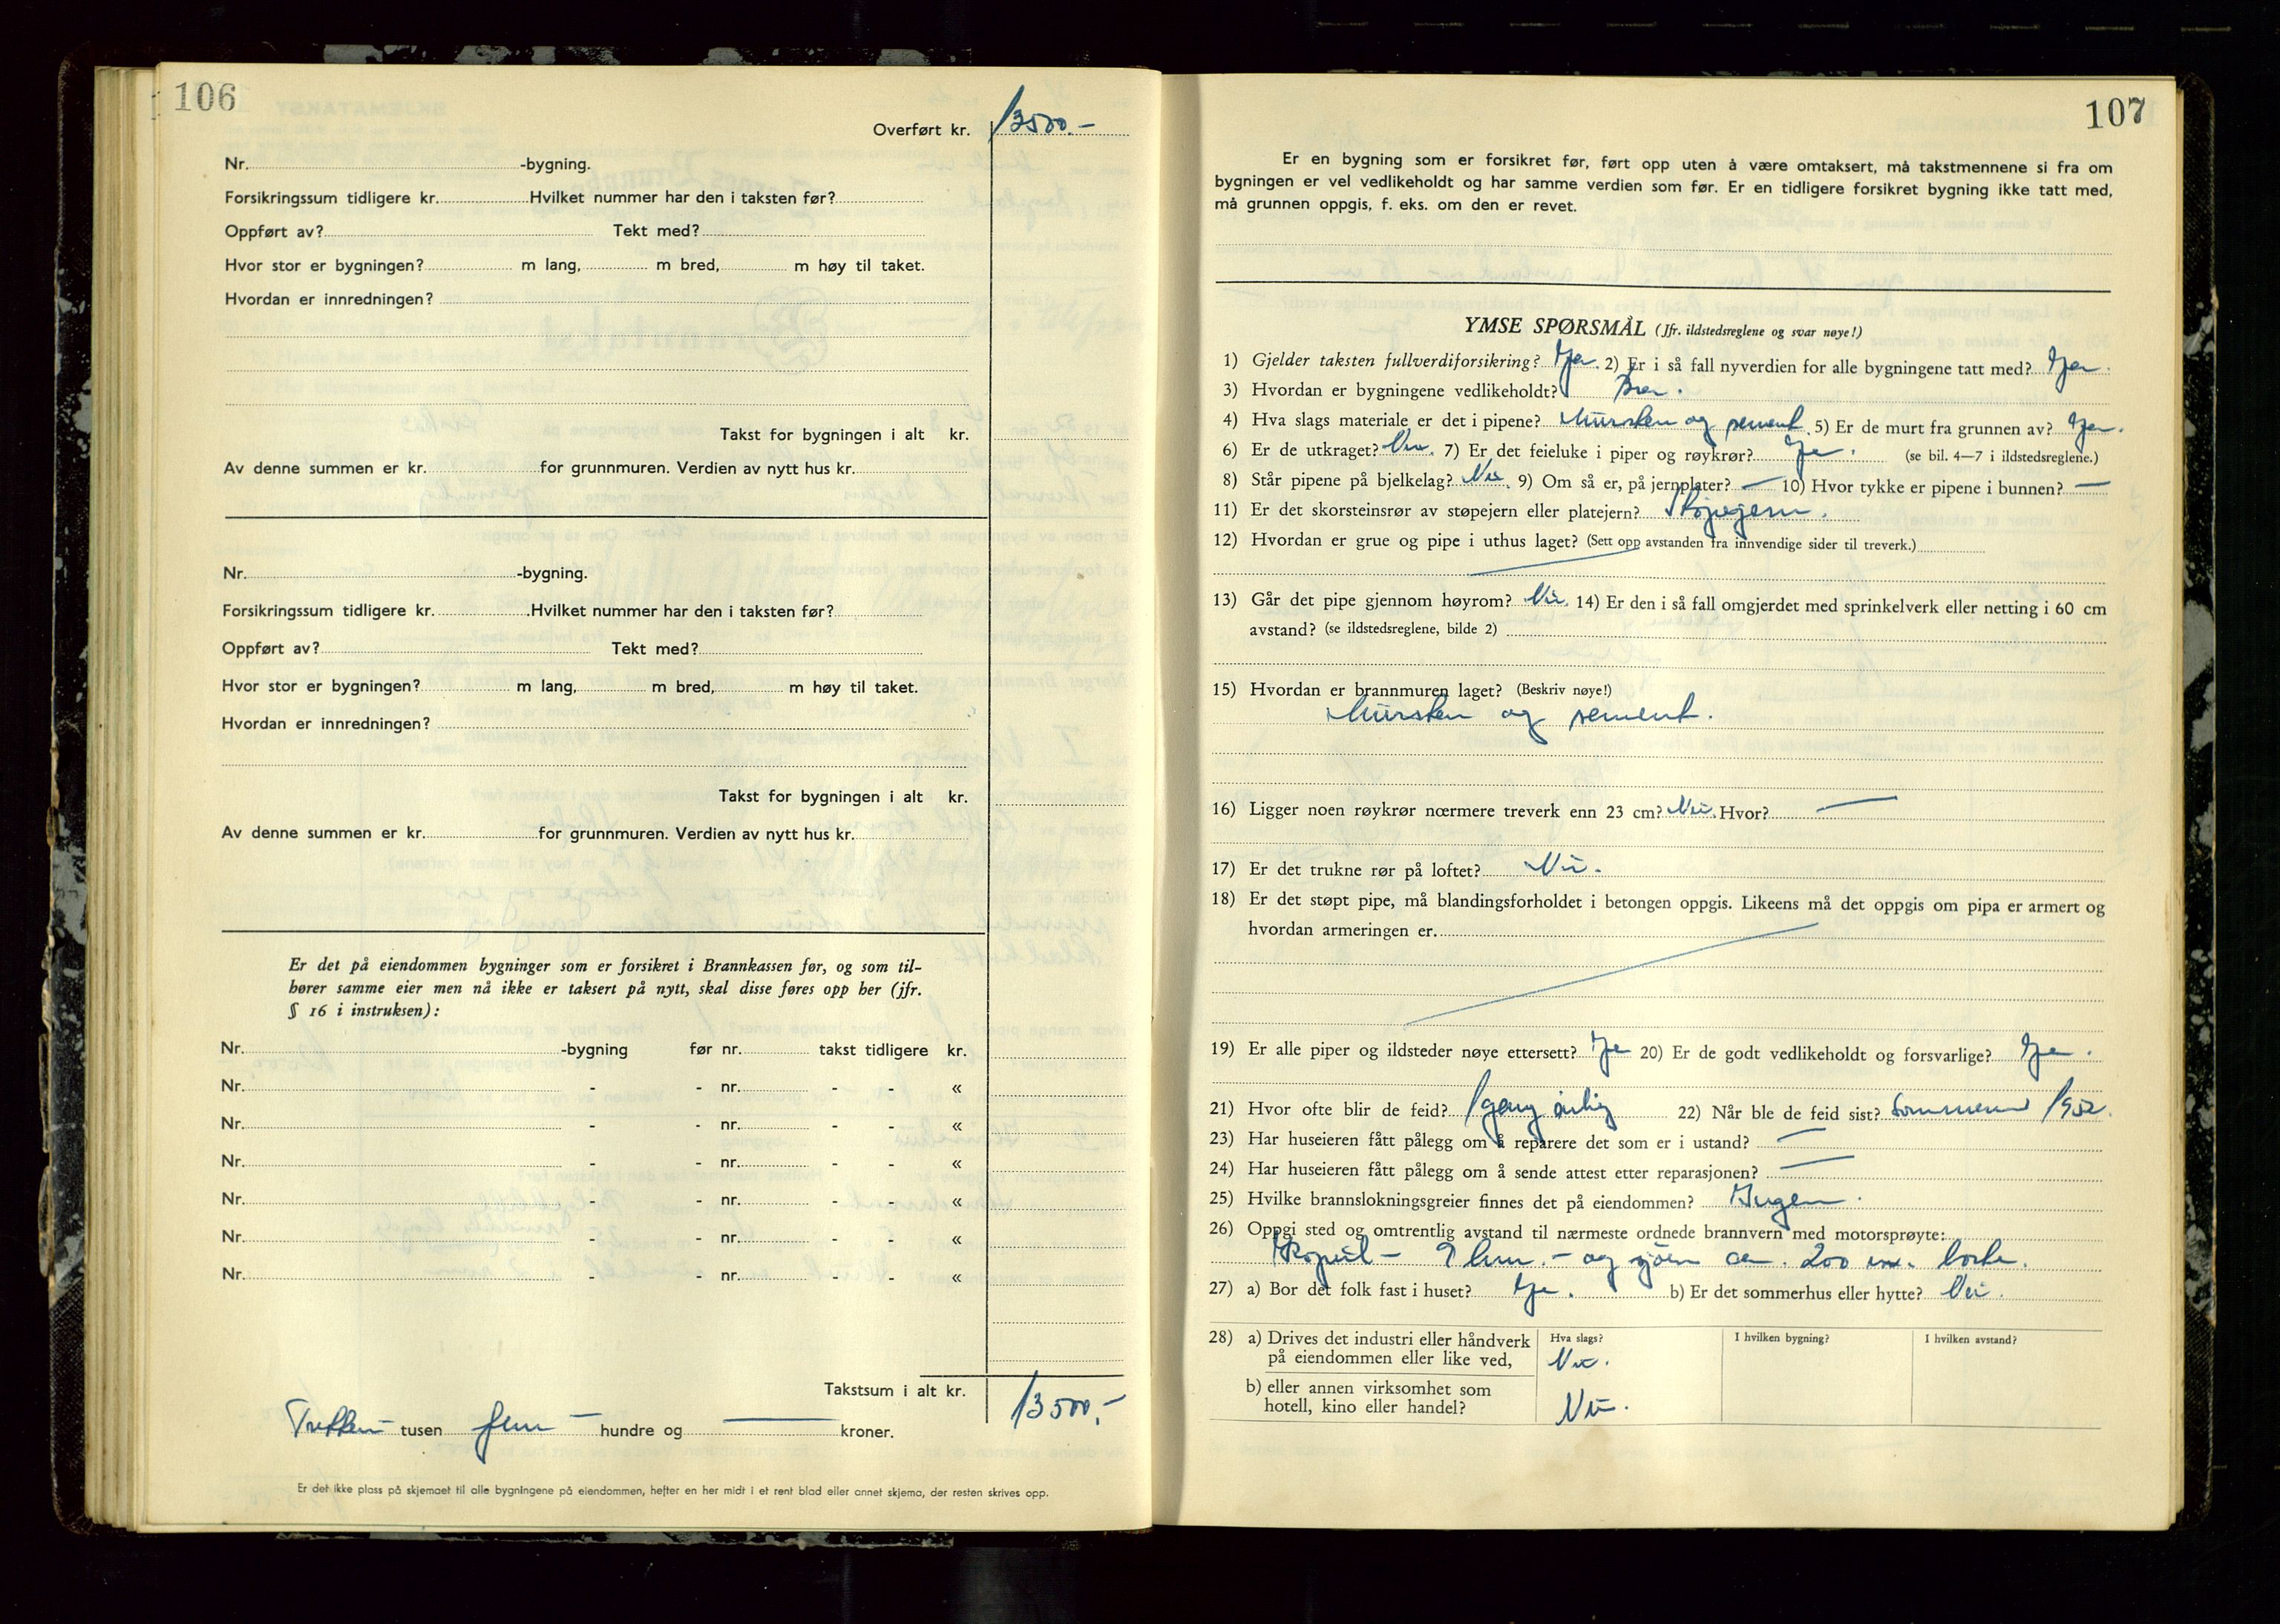 106
Overført kr. 13500.-
Nr. -bygning.
Forsikringssum tidligere kr. Hvilket nummer har den i taksten før?
Oppført av? Tekt med?
Hvor stor er bygningen? m lang, m bred, m høy til taket.
Hvordan er innredningen?
Takst for bygningen i alt kr.
Av denne summen er kr. for grunnmuren. Verdien av nytt hus kr.
Nr. -bygning.
Forsikringssum tidligere kr. Hvilket nummer har den i taksten før?
Oppført av? Tekt med?
Hvor stor er bygningen? m lang, m bred, m høy til taket.
Hvordan er innredningen?
Takst for bygningen i alt kr.
Av denne summen er kr. for grunnmuren. Verdien av nytt hus kr.
Er det på eiendommen bygninger som er forsikret i Brannkassen før, og som til-
hører samme eier men nå ikke er taksert på nytt, skal disse føres opp her (jfr.
§ 16 i instruksen):
Nr. -bygning før nr. takst tidligere kr.
Nr. - - nr. - - «
Nr. - - nr. - - «
Nr. - - nr. - - «
Nr. - - nr. - - «
Nr. - - nr. - - «
Nr. - - nr. - - «
Takstsum i alt kr. 13500.-
Tretten tusen fem hundre og — kroner.
Er det ikke plass på skjemaet til alle bygningene på eiendommen, hefter en her midt i et rent blad eller annet skjema, der resten skrives opp.
107
Er en bygning som er forsikret før, ført opp uten å være omtaksert, må takstmennene si fra om
bygningen er vel vedlikeholdt og har samme verdien som før. Er en tidligere forsikret bygning ikke tatt med,
må grunnen oppgis, f. eks. om den er revet.
YMSE SPØRSMÅL (Jfr. ildstedsreglene og svar nøye!)
1) Gjelder taksten fullverdiforsikring? Ja. 2) Er i så fall nyverdien for alle bygningene tatt med? Ja.
3) Hvordan er bygningene vedlikeholdt? Bra.
4) Hva slags materiale er det i pipene? Mursten og sement. 5) Er de murt fra grunnen av? Ja.
6) Er de utkraget? Nei. 7) Er det feieluke i piper og røykrør? Ja. (se bil. 4—7 i ildstedsreglene.)
8) Står pipene på bjelkelag? Nei. 9) Om så er, på jernplater? — 10) Hvor tykke er pipene i bunnen? —
11) Er det skorsteinsrør av støpejern eller platejern? Støpejern.
12) Hvordan er grue og pipe i uthus laget? (Sett opp avstanden fra innvendige sider til treverk.)
13) Går det pipe gjennom høyrom? Nei. 14) Er den i så fall omgjerdet med sprinkelverk eller netting i 60 cm
avstand? (se ildstedsreglene, bilde 2)
15) Hvordan er brannmuren laget? (Beskriv nøye!)
Mursten og sement.
16) Ligger noen røykrør nærmere treverk enn 23 cm? Nei. Hvor? —
17) Er det trukne rør på loftet? Nei.
18) Er det støpt pipe, må blandingsforholdet i betongen oppgis. Likeens må det oppgis om pipa er armert og
hvordan armeringen er.
19) Er alle piper og ildsteder nøye ettersett? Ja 20) Er de godt vedlikeholdt og forsvarlige? Ja.
21) Hvor ofte blir de feid? 1 gang årlig 22) Når ble de feid sist? Sommeren 1952.
23) Har huseieren fått pålegg om å reparere det som er i ustand? —
24) Har huseieren fått pålegg om å sende attest etter reparasjonen? —
25) Hvilke brannslokningsgreier finnes det på eiendommen? Ingen.
26) Oppgi sted og omtrentlig avstand til nærmeste ordnede brannvern med motorsprøyte:
- 9 km. - og sjøen ca. 200 m. borte.
27) a) Bor det folk fast i huset? Ja. b) Er det sommerhus eller hytte? Nei.
28) a) Drives det industri eller håndverk på eiendommen eller like ved, Hva slags? Nei. I hvilken bygning? I hvilken avstand?
b) eller annen virksomhet som hotell, kino eller handel? Nei.